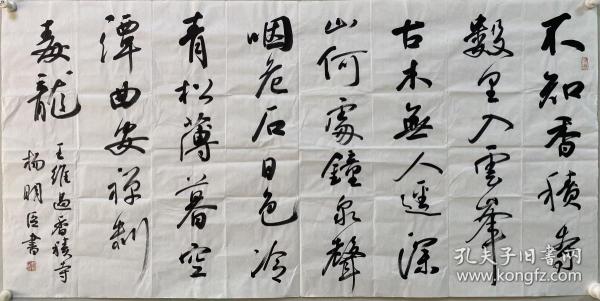 不知香積寺
數里入雲峯
古木無人逕深
山何處鐘泉聲
咽危石日色冷
青松薄暮空
潭曲安禪制
毒龍
王維過香積寺
楊明臣書
孔夫子旧书网
www.kongfz.com